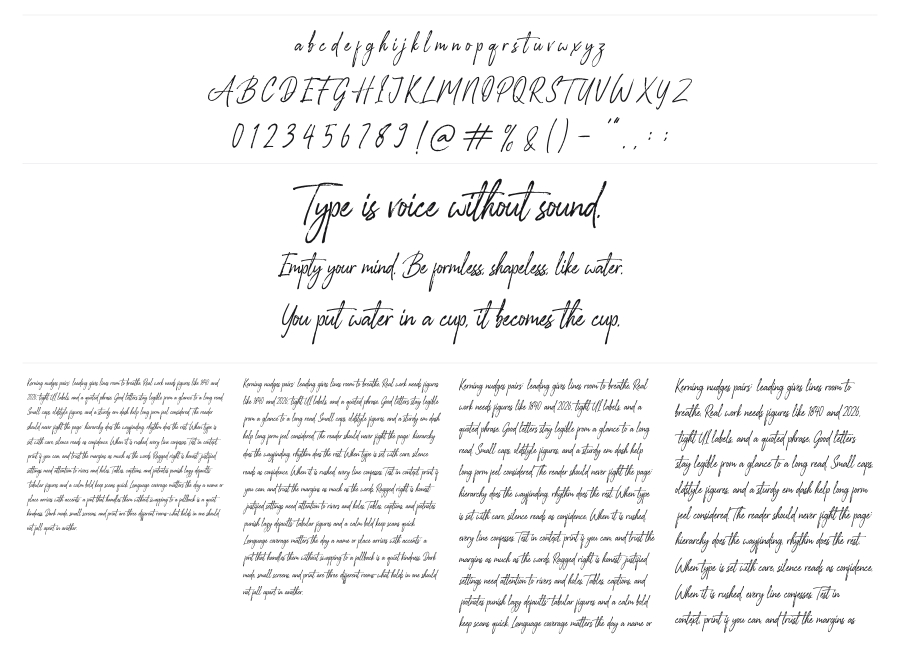 a b c d e f g h i j k l m n o p q r s t u v w x y z
A B C D E F G H I J K L M N O P Q R S T U V W X Y Z
0 1 2 3 4 5 6 7 8 9 ! @ # % & ( ) - ' " . , : ;
Type is voice without sound.
Empty your mind. Be formless, shapeless, like water.
You put water in a cup, it becomes the cup.
Kerning nudges pairs; leading gives lines room to breathe. Real work needs figures like 1890 and
2026, tight UI labels, and a quoted phrase. Good letters stay legible from a glance to a long read.
Small caps, oldstyle figures, and a sturdy em dash help long form feel considered. The reader
should never fight the page: hierarchy does the wayfinding, rhythm does the rest. When type is
set with care, silence reads as confidence. When it is rushed, every line confesses. Test in context,
print if you can, and trust the margins as much as the words. Ragged right is honest; justified
settings need attention to rivers and holes. Tables, captions, and potnotes punish lazy defaults;
tabular figures and a calm bold keep scans quick. Language coverage matters the day a name or
place arrives with accents: a font that handles them without swapping to a fallback is a quiet
kindness. Dark mode, small screens, and print are three different rooms; what holds in one should
not fall apart in another.
Kerning nudges pairs; leading gives lines room to breathe. Real work needs figures
like 1890 and 2026, tight UI labels, and a quoted phrase. Good letters stay legible
from a glance to a long read. Small caps, oldstyle figures, and a sturdy em dash
help long form feel considered. The reader should never fight the page: hierarchy
does the wayfinding, rhythm does the rest. When type is set with care, silence
reads as confidence. When it is rushed, every line confesses. Test in context, print if
you can, and trust the margins as much as the words. Ragged right is honest;
justified settings need attention to rivers and holes. Tables, captions, and potnotes
punish lazy defaults; tabular figures and a calm bold keep scans quick.
Language coverage matters the day a name or place arrives with accents: a
font that handles them without swapping to a fallback is a quiet kindness. Dark
mode, small screens, and print are three different rooms; what holds in one should
not fall apart in another.
Kerning nudges pairs; leading gives lines room to breathe. Real
work needs figures like 1890 and 2026, tight UI labels, and a
quoted phrase. Good letters stay legible from a glance to a long
read. Small caps, oldstyle figures, and a sturdy em dash help
long form feel considered. The reader should never fight the page:
hierarchy does the wayfinding, rhythm does the rest. When type
is set with care, silence reads as confidence. When it is rushed,
every line confesses. Test in context, print if you can, and trust the
margins as much as the words. Ragged right is honest; justified
settings need attention to rivers and holes. Tables, captions, and
potnotes punish lazy defaults; tabular figures and a calm bold
keep scans quick. Language coverage matters the day a name or
Kerning nudges pairs; leading gives lines room to
breathe. Real work needs figures like 1890 and 2026,
tight UI labels, and a quoted phrase. Good letters
stay legible from a glance to a long read. Small caps,
oldstyle figures, and a sturdy em dash help long form
feel considered. The reader should never fight the page:
hierarchy does the wayfinding, rhythm does the rest.
When type is set with care, silence reads as confidence.
When it is rushed, every line confesses. Test in
context, print if you can, and trust the margins as